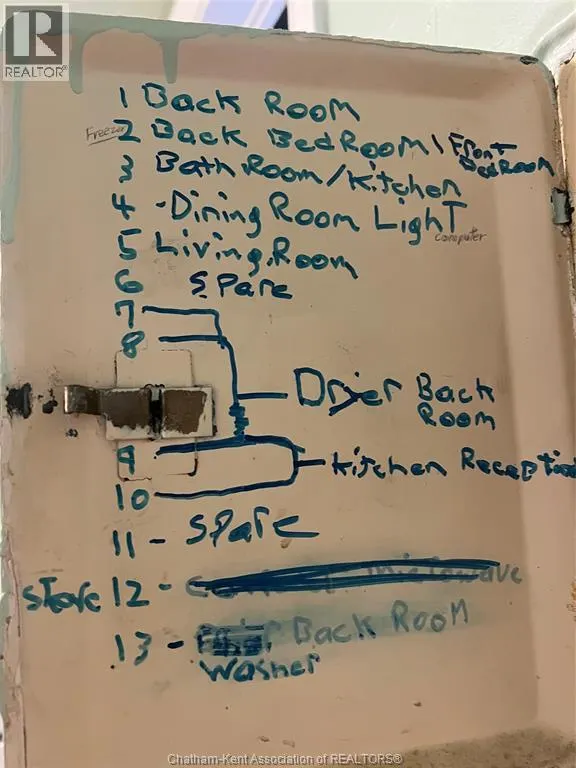 R
REALTOR®
1 Back Room
Freezer 2 Back BedRoom \ Front BedRoom
3 BathRoom/Kitchen
4 - Dining Room LighT
computer
5 Living Room
6 SPare
7
8
Drier Back
Room
9
Kitchen Reception
10
11 - SPare
stove 12 - microwave
13 - Back Room
washer
Chatham-Kent Association of REALTORS®